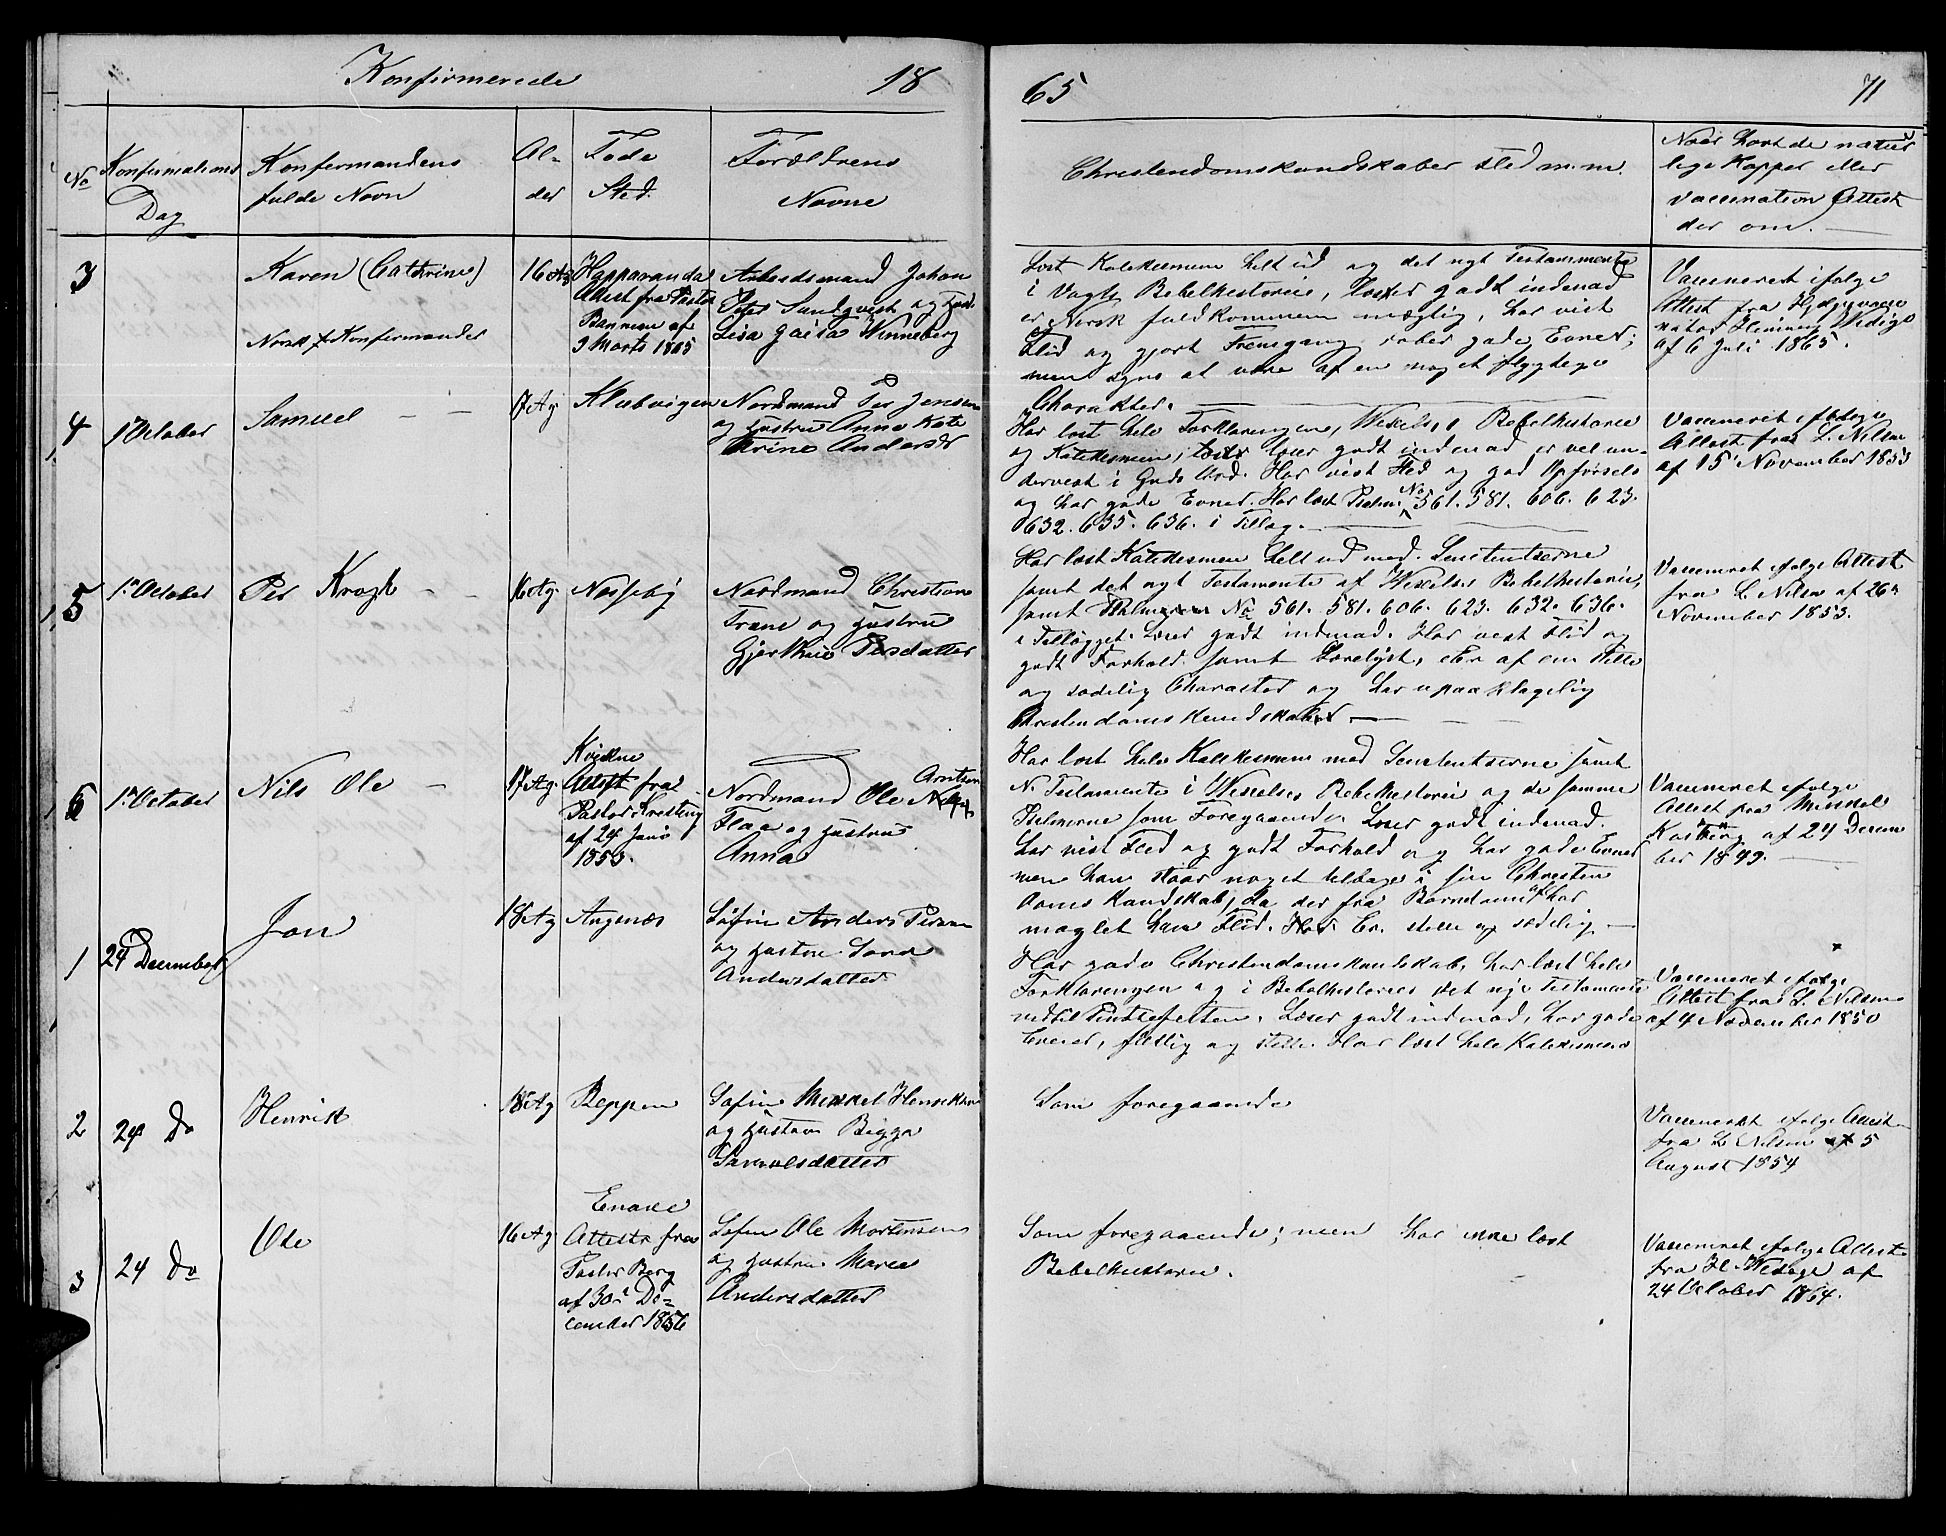 Konfirmerede 18
65 71
No
Konfirmations
Dag
Konfirmandens
fulde Navn
Al-
der
Føde
Sted.
Forældrens
Navne
Christendomskundskaber sted m.m.
Naar havt de natur
lige Kopper eller
vaccination Attest
der om.
3
Karen (Cathrine)
Norske Konfirmander
16 Ag
Happaranda
Attest fra Pastor
af
3 Marts 1865
Arbeidsmand Johan
Peter Sandqvist og Hust.
Lisa Gaisa Winneberg
Læst Katekismen helt ud og det nyt Testamente
i Vogts Bibelhistorie, læser godt indenad
er Norsk fuldkommen mægtig, har vist
Flid og gjort Fremgang, gode Evner;
men synes at være af en noget flygtige
Charakter.
Vaccineret ifølge
Attest fra Hjælpevacci
natør Henning Wedige
af 6 Juli 1865.
4
1 October
Samuel
17 Ag.
Klubvigen
Nordmand Per Jensen
og Hustru Anna Kate
Trine Andersdr
Har læst hele Forklaringen, Wexelses Bibelhistorie
og Katekismen; læser godt indenad er vel un-
dervist i Guds Ord. Har vist Flid og god Opførsel
og har gode Evner. Har læst Psalm. No 561. 581. 606. 623.
632. 635. 636. i Tillæg.
Vaccineret ifølge
Attest fra L. Nilsen
af 15 November 1853
5
1 October
Per Krogh
16 Ag.
Næsseby
Nordmand Christian
Frane og Hustru
Gjerthrue Persdatter
Har læst Katekismen helt ud med Sententserne
samt det nyt Testamente af Wexelses Bibelhistorie,
samt Psalmerne No 561. 581. 606. 623. 632. 636.
i Tillægget. Læser godt indenad. Har vist Flid og
godt Forhold samt Lærelyst. Er af en stille
og sædelig Charakter og har upaaklagelig
Christendomskundskaber.
Vaccineret ifølge Attest
fra L Nilsen af 26n
November 1853.
6
1 October
Nils Ole
17 Ag.
Kvikne
Attest fra
Pastor Kresting
af 24 Jan.
1853.
Arntsen
Nordmand Ole
Flaa og Hustru
Anna
Har læst hele Katekismen med Sententserne samt
N. Testamente i Wexelses Bibelhistorie og de samme
Psalmerne som Foregaaende. Læser godt indenad.
har vist Flid og godt Forhold og har gode Evner
men han staar noget tilbage i sin Christen
doms kundskab, da der fra Barndommen har
maglet ham Flid. Er stille og sædelig.
Vaccineret ifølge
Attest fra Mikkel
Kosting af 24 Decem
ber 1849.
1
24 December
Jon
18 Ag
Angsnæs
Søfin Anders Persen
og Hustru Sara
Andersdatter
Har gode Christendomskundskab, har læst hele
Forklaringen og i Bibelhistorie det nye Testamente
indtil Pintsefesten. Læser godt indenad, har gode
Evner, flittig og stille. Har læst hele Katekismen
Vaccineret ifølge
Attest fra L. Nilsen
af 4 November 1850
2
24 Do
Henrik
18 Ag
Reppen
Søfin Mikkel Henriksen
og Hustru Bigga
Samuelsdatter
Som foregaaende
Vaccineret ifølge Attest
fra L Nilsen af 5
August 1854
3
24 Do
Ole
16 Ag
Enare
Attest fra
Pastor Berg
af 30. De-
cember 1856
Søfin Ole Mortensen
og Hustru Maria
Andersdatter
Som foregaaende; men har ikke læst
Bibelhistorie.
Vaccineret ifølge Attest
fra H. Wedige af
24 October 1864.